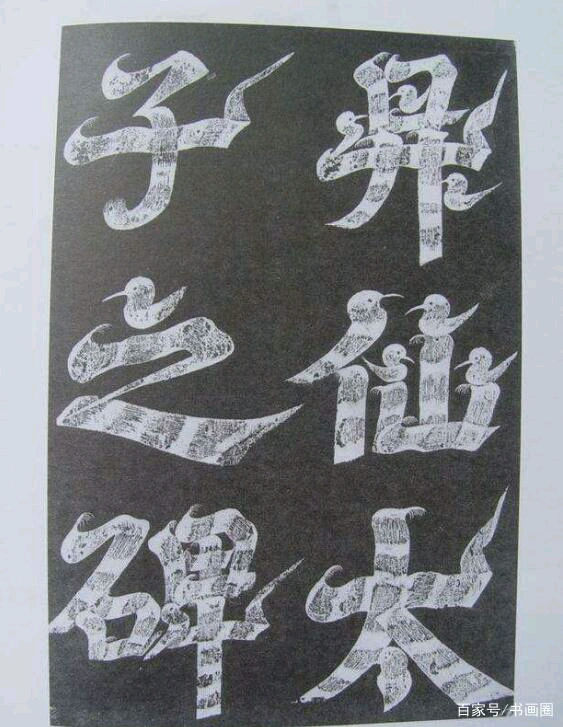 昇仙太
子之碑
百家号/书画圈